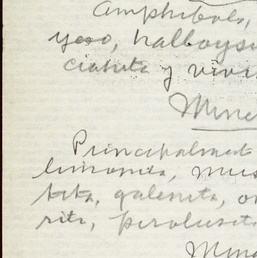 Amphibols,
yeso, halloysi
cianita y vivi
Mine
Principalment
limonita, mus
tita, galenita, o
rita, pirolusita
Mine